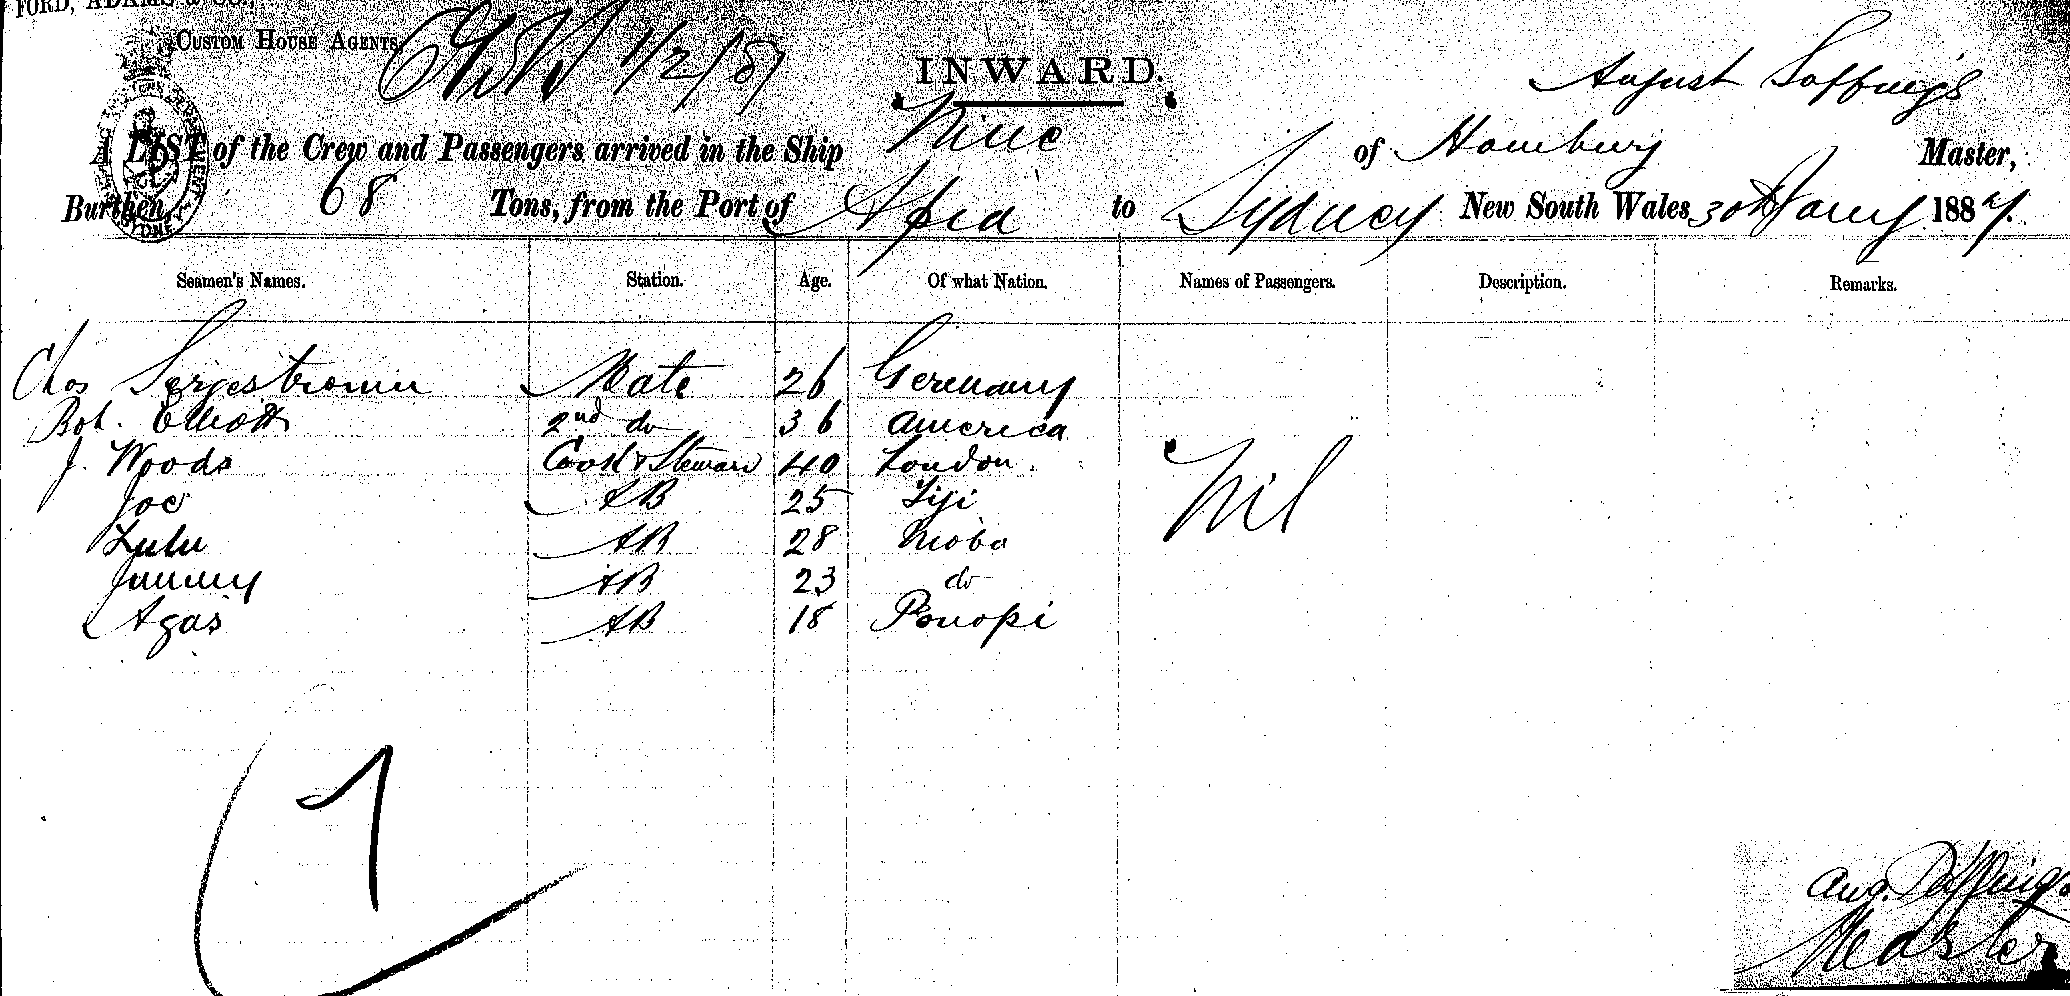 FORD, ADAMS & CO.,
CUSTOM HOUSE AGENTS.
1/2/87
INWARD.
August
A LIST of the Crew and Passengers arrived in the Ship Niue of Hamburg Master,
Burthen, 68 Tons, from the Port of Apia to Sydney New South Wales 30th Jany 1887.
Seamen's Names. Station. Age. Of what Nation. Names of Passengers. Description. Remarks.
Chas Mate 26 Germany
Rob. Elliott 2nd do 36 America
J. Woods Cook & Steward 40 London
Joe AB 25 Fiji
Lulu AB 28 Mobo
Jimmy AB 23 do
Agas AB 18 Ponopi
Nil
7
Aug.
Master